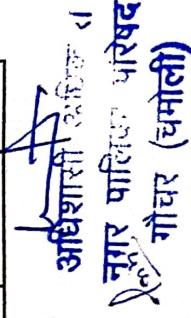 अधिशासी
नगर पालिका परिषद
गौचर (चमोली)